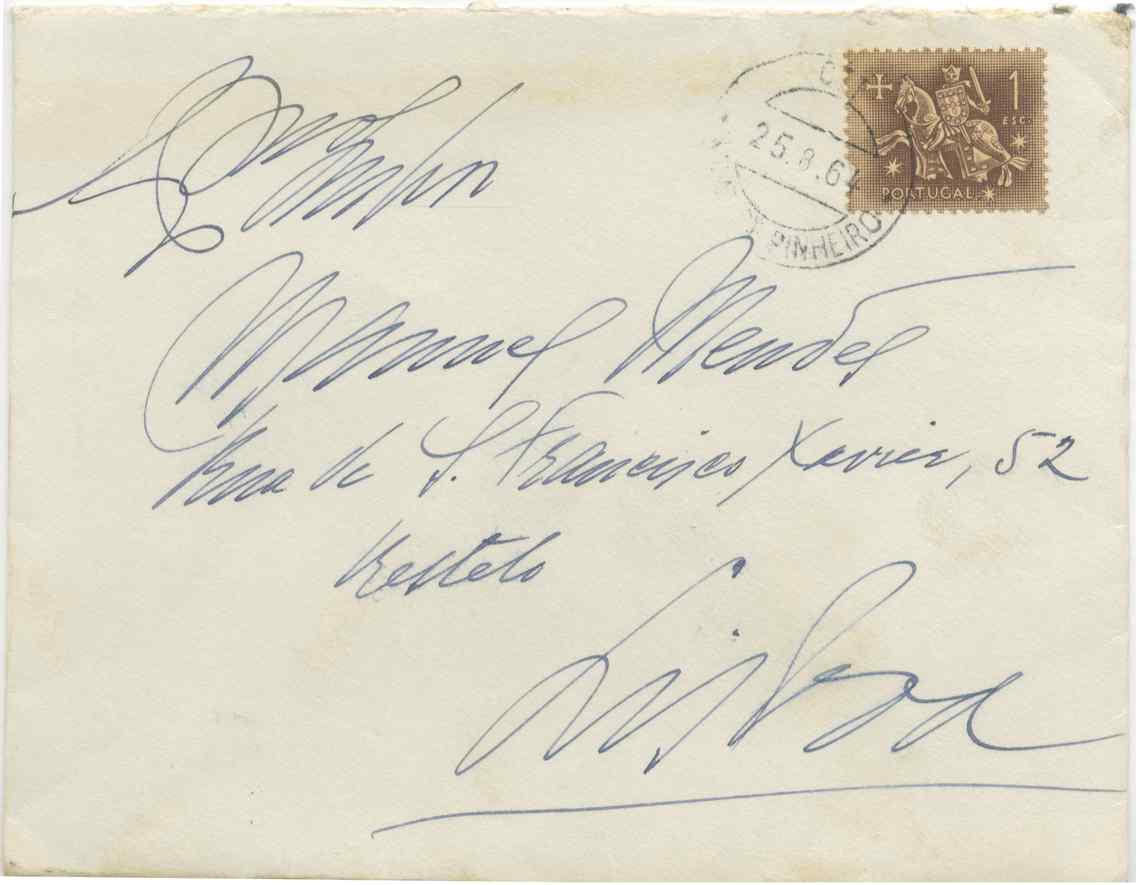 25.8.64
PINHEIRO
1
ESC.
PORTUGAL
Exmo
Senhor
Manuel Mendes
Rua de S. Francisco Xavier, 52
Restelo
Lisboa